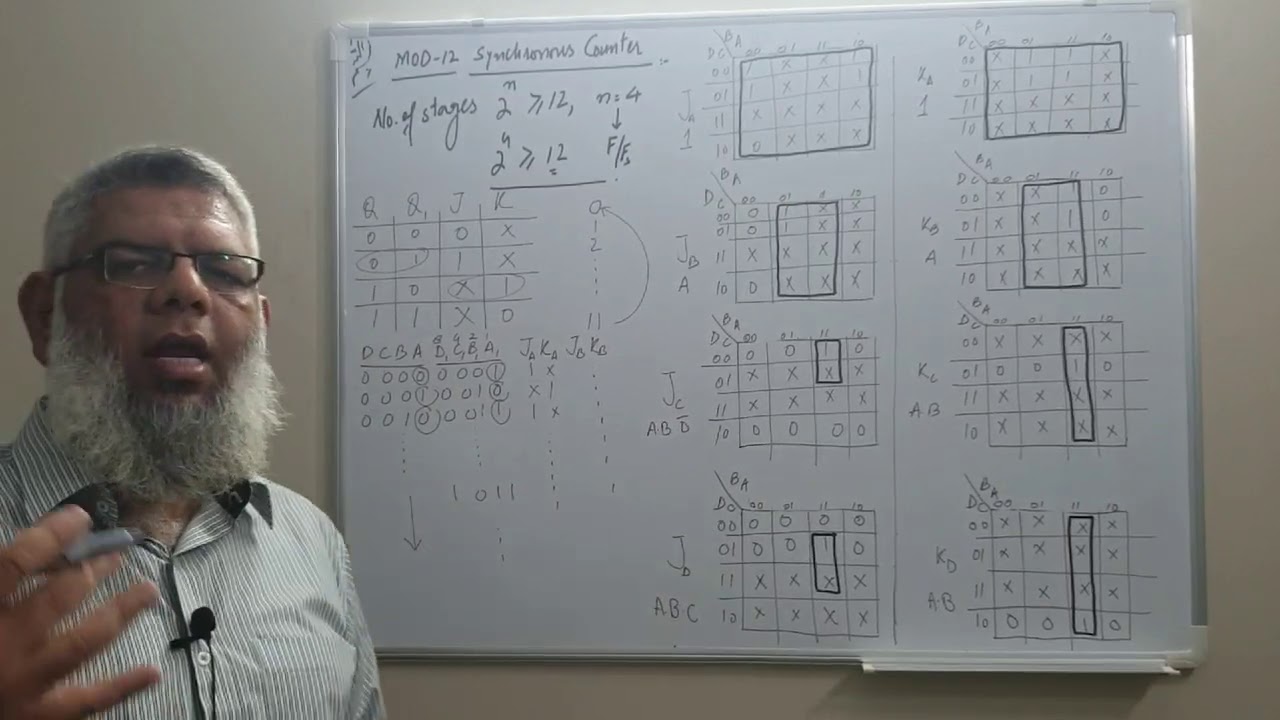 MOD-12 Synchronous Counter :-
No. of stages 2^n ≥ 12, n = 4
↓
2^4 ≥ 12 F/Fs
Q Q₁ J K
0 0 0 X
0 1 1 X
1 0 X 1
1 1 X 0
0
1
2
11
D C B A D₁ C₁ B₁ A₁ J_A K_A J_B K_B
0 0 0 0 0 0 0 1 1 X
0 0 0 1 0 0 1 0 X 1
0 0 1 0 0 0 1 1 1 X
1 0 1 1
BA
DC 00 01 11 10
00 1 X X 1
01 1 X X 1
11 X X X X
10 0 X X X
J_A
1
BA
DC 00 01 11 10
00 0 1 X X
01 0 1 X X
11 X X X X
10 0 X X X
J_B
A
BA
DC 00 01 11 10
00 0 0 1 0
01 X X X X
11 X X X X
10 0 0 0 0
J_C
AB D̅
BA
DC 00 01 11 10
00 0 0 0 0
01 0 0 1 0
11 X X X X
10 X X X X
J_D
A B C
DC 00 01 11 10
00 X 1 1 X
01 X 1 1 X
11 X X X X
10 X X X X
K_A
1
BA
DC 00 01 11 10
00 X X 1 0
01 X X 1 0
11 X X X X
10 X X X X
K_B
A
BA
DC 00 01 11 10
00 X X X X
01 0 0 1 0
11 X X X X
10 X X X X
K_C
A.B
BA
DC 00 01 11 10
00 X X X X
01 X X X X
11 X X X X
10 0 0 1 0
K_D
A.B